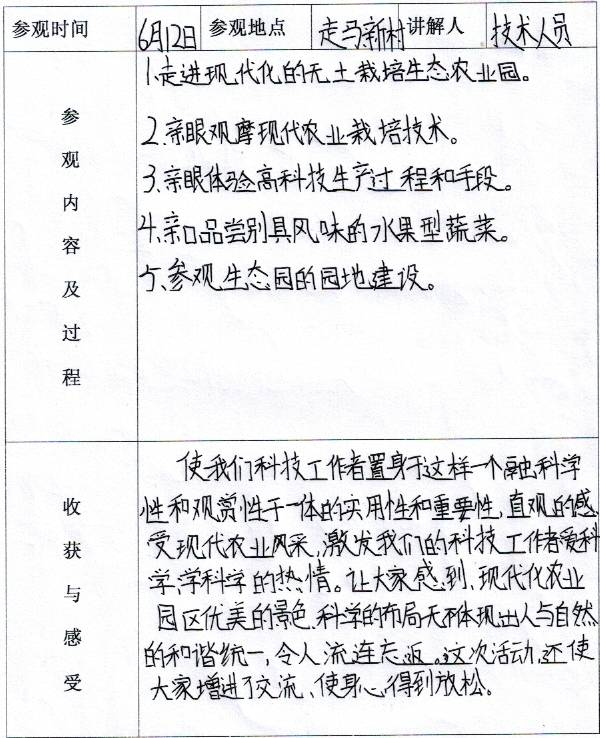 参观时间 6月12日 参观地点 走马新村 讲解人 技术人员
参观内容及过程
1.走进现代化的无土栽培生态农业园。
2.亲眼观摩现代农业栽培技术。
3.亲眼体验高科技生产过程和手段。
4.亲口品尝别具风味的水果型蔬菜。
5.参观生态园的园地建设。
收获与感受
使我们科技工作者置身于这样一个融科学
性和观赏性于一体的实用性和重要性,直观的感
受现代农业风采,激发我们的科技工作者爱科
学、学科学的热情。让大家感到、现代化农业
园区优美的景色.科学的布局无不体现出人与自然
的和谐统一,令人流连忘返。这次活动,还使
大家增进了交流、使身心得到放松。